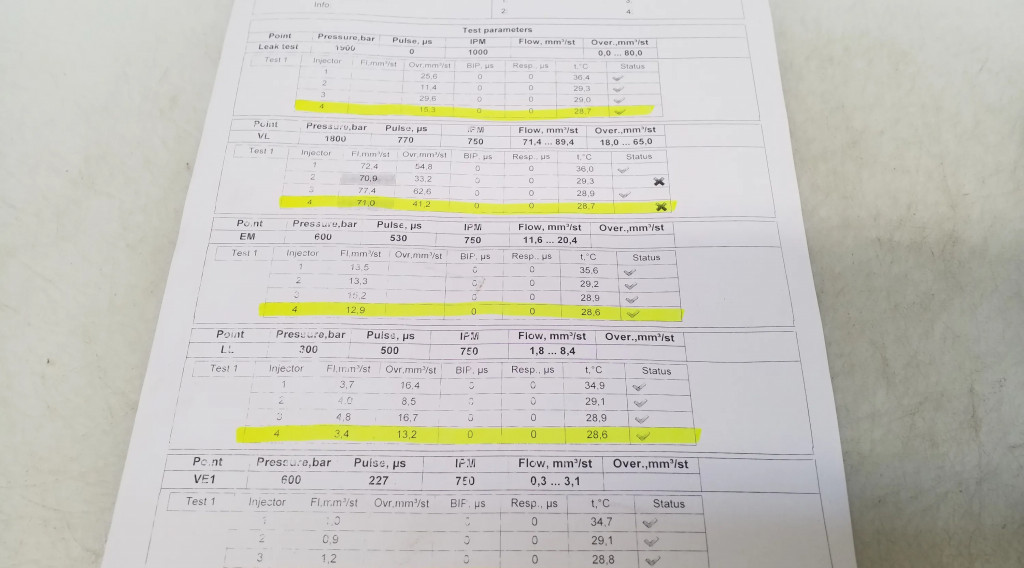 Info
2
4
Test parameters
Point Pressure,bar Pulse, µs IPM Flow, mm³/st Over.,mm³/st
Leak test 1500 0 1000 0,0 ... 80,0
Test 1 Injector Fl.mm³/st Ovr.mm³/st BIP, µs Resp., µs t,°C Status
1 25,6 0 0 36,4
2 11,4 0 0 29,3
3 29,6 0 0 29,0
4 15,3 0 0 28,7
Point Pressure,bar Pulse, µs IPM Flow, mm³/st Over.,mm³/st
VL 1800 770 750 71,4 ... 89,4 18,0 ... 65,0
Test 1 Injector Fl.mm³/st Ovr.mm³/st BIP, µs Resp., µs t,°C Status
1 72,4 54,8 0 0 36,0
2 70,9 33,2 0 0 29,3
3 77,4 62,6 0 0 28,9
4 71,0 41,2 0 0 28,7
Point Pressure,bar Pulse, µs IPM Flow, mm³/st Over.,mm³/st
EM 600 530 750 11,6 ... 20,4
Test 1 Injector Fl.mm³/st Ovr,mm³/st BIP, µs Resp., µs t,°C Status
1 13,5 0 0 35,6
2 13,3 0 0 29,2
3 15,2 0 0 28,9
4 12,9 0 0 28,6
Point Pressure,bar Pulse, µs IPM Flow, mm³/st Over.,mm³/st
LL 300 500 750 1,8 ... 8,4
Test 1 Injector Fl.mm³/st Ovr,mm³/st BIP, µs Resp., µs t,°C Status
1 3,7 16,4 0 0 34,9
2 4,0 8,5 0 0 29,1
3 4,8 16,7 0 0 28,9
4 3,4 13,2 0 0 28,6
Point Pressure,bar Pulse, µs IPM Flow, mm³/st Over.,mm³/st
VE1 600 227 750 0,3 ... 3,1
Test 1 Injector Fl.mm³/st Ovr,mm³/st BIP, µs Resp., µs t,°C Status
1 1,0 0 0 34,7
2 0,9 0 0 29,1
3 1,2 0 0 28,8